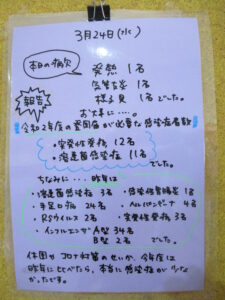 3月24日(水)
本日の病欠
発熱 1名
気管支炎 1名
様子見 1名 でした。
お大事に…。
報告
令和2年度の登園届が必要な感染症者数
・突発性発疹 12名
・溶連菌感染症 11名
でした。
ちなみに… 昨年は
・溶連菌感染症 3名 ・感染性胃腸炎 1名
・手足口病 24名 ・ヘルパンギーナ 4名
・RSウイルス 2名 ・突発性発疹 3名
・インフルエンザ A型 34名
B型 2名 でした。
休園や コロナ対策のせいか、今年度は
昨年に比べたら、本当に感染症が 少な
かったです。